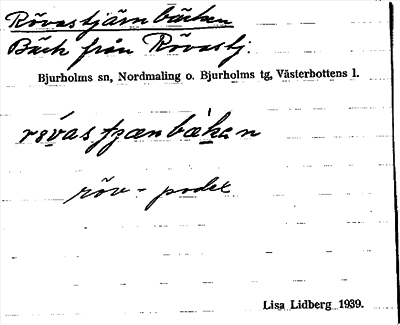 Rövastjärnbäcken
Bäck från Rövastj.
Bjurholms sn, Nordmaling o. Bjurholms tg, Västerbottens l.
rövas tjænbäkan
röv - podex
Lisa Lidberg 1939.